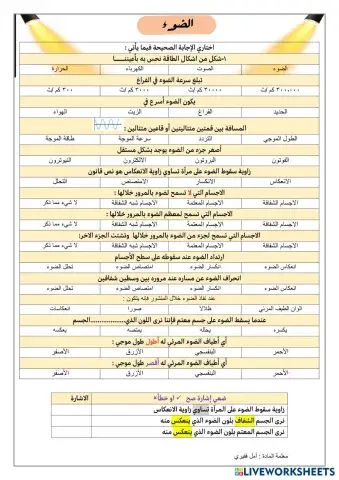 الضوء
اختاري الإجابة الصحيحة فيما يأتي :
١-شكل من اشكال الطاقة نحس به بأعيننا
الضوء الصوت الكهرباء الحرارة
تبلغ سرعة الضوء في الفراغ
٣٠٠,٠٠٠ كم/ث ٣٠٠٠٠ كم/ث ٣٠٠٠ كم/ث ٣٠٠ كم/ث
يكون الضوء أسرع في
الحديد الفراغ الزيت الهواء
المسافة بين قمتين متتاليتين أو قاعين متتالين :
الطول الموجي التردد سرعة الموجة طاقة الموجة
أصغر جزء من الضوء يوجد بشكل مستقل
الفوتون البروتون الالكترون النيوترون
زاوية سقوط الضوء على مرآة تساوي زاوية الانعكاس هو نص قانون
الانعكاس الإنكسار الامتصاص انتحال
الاجسام التي لا تسمح لضوء بالمرور خلالها :
الاجسام الشفافة الاجسام المعتمة الاجسام شبه الشفافة لا شيء مما ذكر
الاجسام التي تسمح لمعظم الضوء بالمرور خلالها :
الاجسام الشفافة الاجسام المعتمة الاجسام شبه الشفافة لا شيء مما ذكر
الاجسام التي تسمح لجزء من الضوء بالمرور خلالها وتشتت الجزء الاخر:
الاجسام الشفافة الاجسام المعتمة الاجسام شبه الشفافة لا شيء مما ذكر
ارتداد الضوء عند سقوطه على سطح الأجسام
انعكاس الضوء انكسار الضوء امتصاص الضوء تحلل الضوء
انحراف الضوء عن مساره عند مروره بين وسطين شفافين
انعكاس الضوء انكسار الضوء امتصاص الضوء تحلل الضوء
عند نفاذ الضوء خلال المنشور فإنه يتكون :
الوان الطيف المرئي ظلالا صورا انعكاسات
عندما يسقط الضوء على جسم معتم فإننا نرى اللون الذي..................الجسم
يكسره يحلله يمتصه يعكسه
أي أطياف الضوء المرئي له أطول طول موجي :
الأحمر البنفسجي الأزرق الأصفر
أي أطياف الضوء المرئي له أقصر طول موجي :
الأحمر البنفسجي الأزرق الأصفر
ضعي إشارة صح ✓ او خطأ× الاشارة
زاوية سقوط الضوء على المرآة تساوي زاوية الانعكاس
نرى الجسم الشفاف بلون الضوء الذي ينعكس منه
نرى الجسم المعتم بلون الضوء الذي ينعكس منه
معلمة المادة : أمل فقيري
LIVEWORKSHEETS